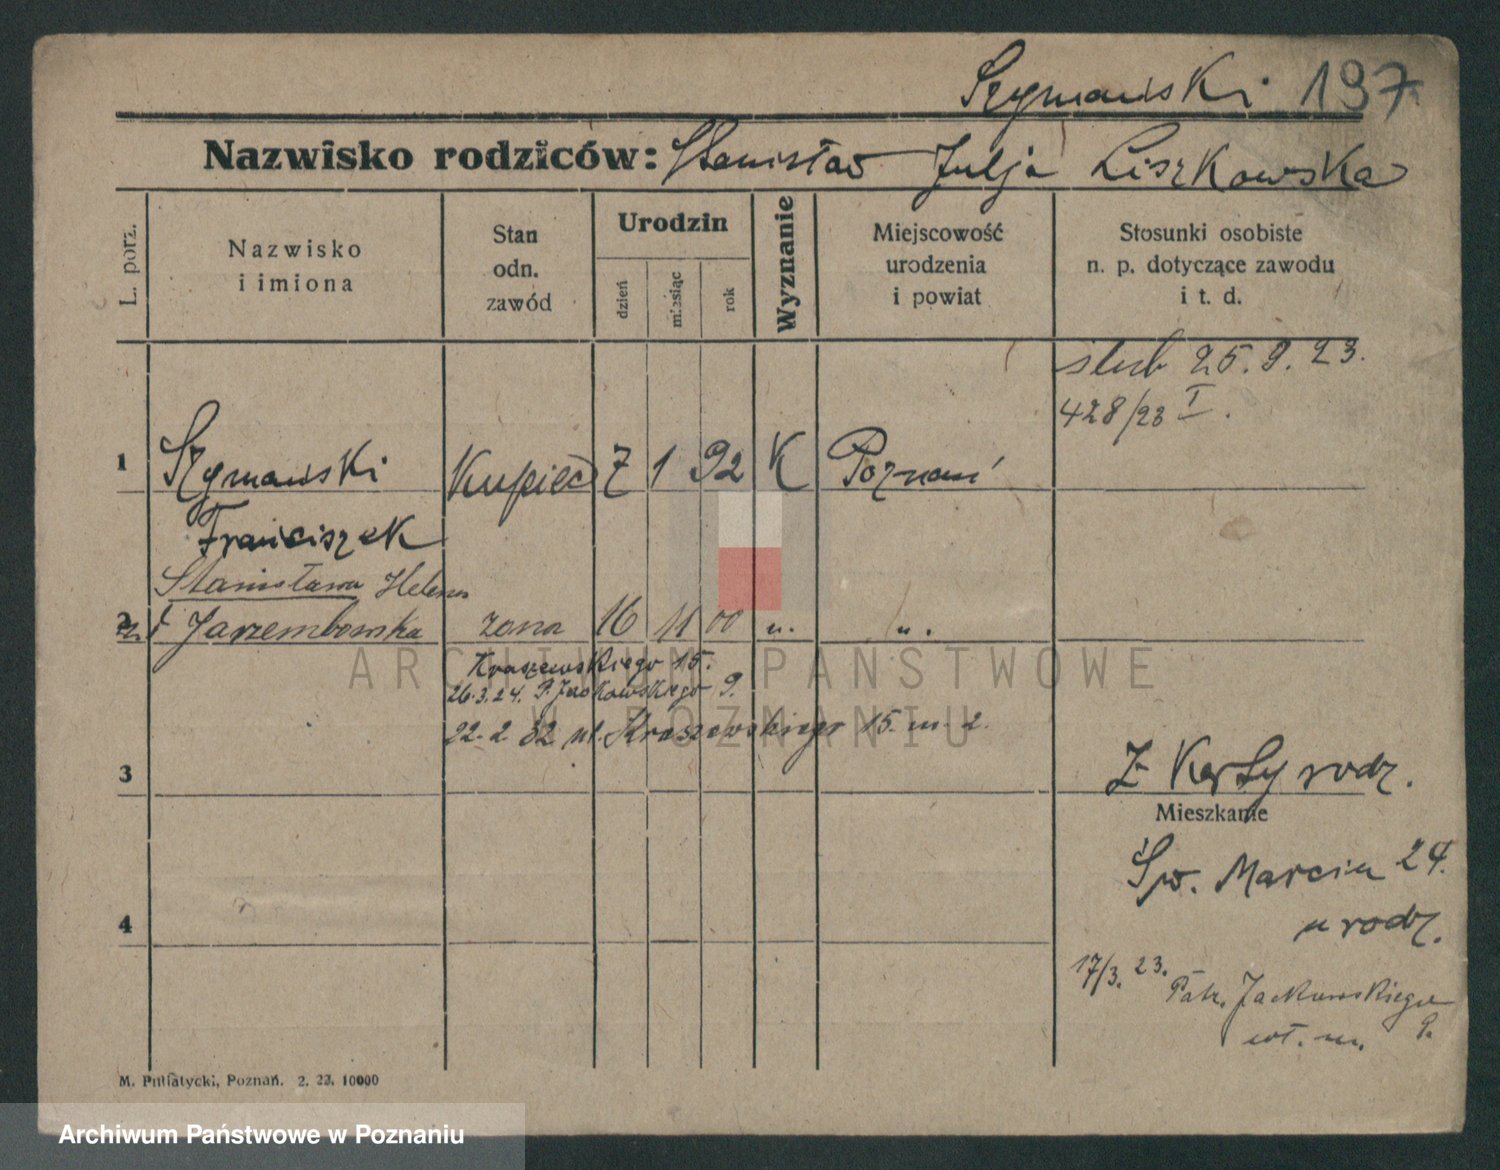 Szymański 197
Nazwisko rodziców: Stanisław Julja Liszkowska
L. porz.
Nazwisko
i imiona
Stan
odn.
zawód
Urodzin
dzień
miesiąc
rok
Wyznanie
Miejscowość
urodzenia
i powiat
Stosunki osobiste
n. p. dotyczące zawodu
i t. d.
ślub 25. 9. 23.
428/23 I.
1 Szymański Kupiec 7 1 92 K Poznań
Franciszek
Stanisława Helena
2 Jarzembowska żona 16 11 00 u. u.
Kraszewskiego 15.
26.3.24. P. Jackowskiego 9.
22. 2 32 ul. Kraszewskiego 15. m. 2.
3
Z Karty rodz.
Mieszkanie
Św. Marcin 24.
u rodz.
4
17/3. 23.
Patr. Jackowskiego
wł. m. 9.
M. Putiatycki, Poznań. 2. 23. 10000
ARCHIWUM PAŃSTWOWE
W POZNANIU
Archiwum Państwowe w Poznaniu